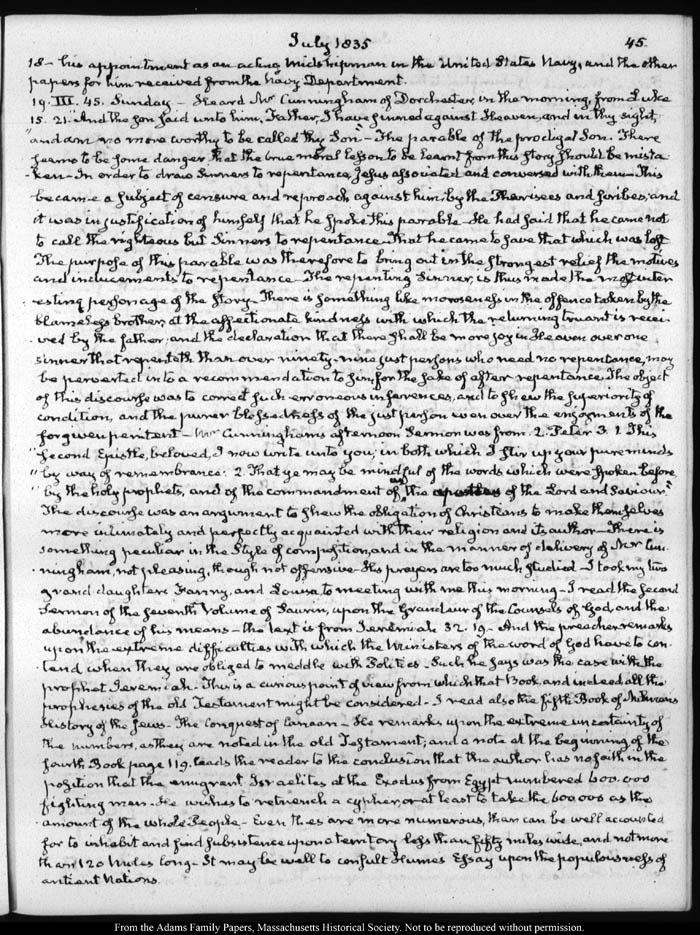 July 1835
45.
18 - his appointment as an acting Midshipman in the United States Navy, and the other
papers for him received from the Navy Department.
19. III. 45. Sunday - Heard Mr Cunningham of Dorchester, in the morning, from Luke
15. 21. And the Son said unto him, Father, I have sinned against Heaven, and in thy sight,
"and am no more worthy to be called thy Son" - The parable of the prodigal Son. There
seems to be some danger that the true moral lesson to be learnt from this story should be mista
-ken - In order to draw Sinners to repentance, Jesus associated and conversed with them - This
became a subject of censure and reproach against him, by the Pharisees and scribes, and
it was in justification of himself that he spoke this parable - He had said that he came not
to call the righteous but Sinners to repentance - That he came to save that which was lost
The purpose of this parable was therefore to bring out in the strongest relief the motives
and inducements to repentance - The repenting Sinner, is thus made the most inter
-esting personage of the story - There is something like moroseness in the offence taken by the
blameless brother, at the affectionate kindness with which the returning truant is recei
-ved by the father, and the declaration that there shall be more joy in Heaven over one
sinner that repenteth than over ninety-nine just persons who need no repentance, may
be perverted into a recommendation to sin, for the sake of after repentance. The object
of this discourse was to correct such erroneous inferences, and to shew the superiority of
condition, and the purer blessedness of the just person even over the enjoyments of the
forgiven penitent - Mr Cunningham's afternoon Sermon was from 2. Peter 3. 1. This
"second Epistle, beloved, I now write unto you; in both which I stir up your pure minds
"by way of remembrance: 2. That ye may be mindful of the words which were spoken before
"by the holy prophets, and of the commandment of us the apostles of the Lord and Saviour"
The discourse was an argument to shew the obligation of Christians to make themselves
more intimately and perfectly acquainted with their religion and its author - There is
something peculiar in the style of composition, and in the manner of delivery of Mr Cun
-ningham, not pleasing, though not offensive - His prayers are too much studied - I took my two
grand-daughters Fanny, and Louisa, to meeting with me this morning - I read the second
Sermon of the seventh Volume of Saurin, upon the Grandeur of the Counsels of God, and the
abundance of his means - the text is from Jeremiah 32. 19 - And the preacher remarks
upon the extreme difficulties with which the Ministers of the word of God have to con
-tend when they are obliged to meddle with Politics - Such he says was the case with the
prophet Jeremiah. This is a curious point of view from which that Book, and indeed all the
prophesies of the old Testament might be considered - I read also the fifth Book of Milman's
History of the Jews - The Conquest of Canaan - He remarks upon the extreme uncertainty of
the numbers, as they are noted in the old Testament; and a note at the beginning of the
fourth Book page 119. leads the reader to the conclusion that the author has no faith in the
position that the emigrant Israelites at the Exodus from Egypt numbered 600.000
fighting men - He wishes to retrench a cypher, or at least to take the 600,000 as the
amount of the whole People - Even these are more numerous, than can be well accounted
for to inhabit and find subsistence upon a territory less than fifty miles wide, and not more
than 120 miles long - It may be well to consult Humes Essay upon the populousness of
antient Nations.
From the Adams Family Papers, Massachusetts Historical Society. Not to be reproduced without permission.